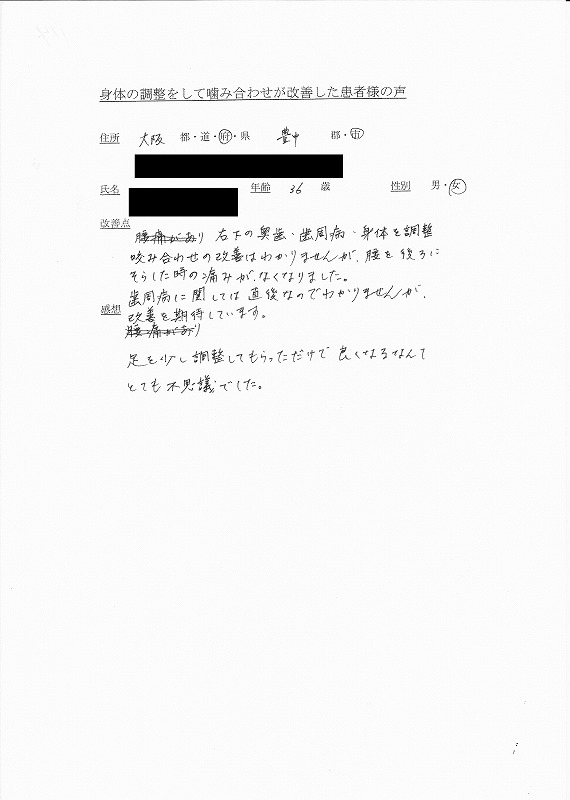 身体の調整をして噛み合わせが改善した患者様の声
住所 大阪 都・道・府・県 豊中 郡・市
氏名 年齢 36 歳 性別 男・女
改善点
腰痛があり 右下の奥歯・歯周病・身体を調整
咬み合わせの改善はわかりませんが、腰を後ろに
そらした時の痛みがなくなりました。
歯周病に関しては直後なのでわかりませんが、
感想 改善を期待しています。
腰痛があり
足を少し調整してもらっただけで良くなるなんて
とても不思議でした。